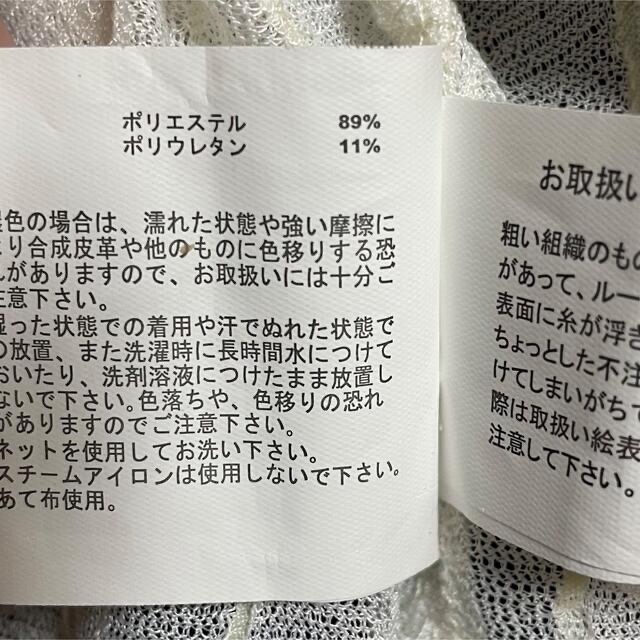 ポリエステル 89%
ポリウレタン 11%
色の場合は、濡れた状態や強い摩擦に
り合成皮革や他のものに色移りする恐
がありますので、お取扱いには十分ご
注意下さい。
湿った状態での着用や汗でぬれた状態で
の放置、また洗濯時に長時間水につけて
おいたり、洗剤溶液につけたまま放置し
ないで下さい。色落ちや、色移りの恐れ
がありますのでご注意下さい。
ネットを使用してお洗い下さい。
スチームアイロンは使用しないで下さい。
あて布使用。
お取扱い
粗い組織のもの
があって、ルー
表面に糸が浮き
ちょっとした不注
けてしまいがちで
際は取扱い絵表
注意して下さい。